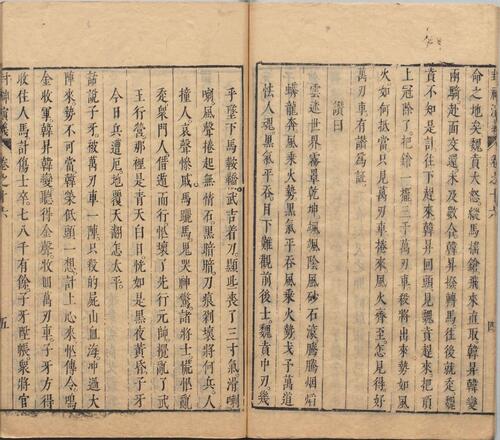 命之地矣魏賁大怒縱馬搖鎗飛來直取韓昇韓變
兩騎赴面交還未及數合韓昇撥轉馬往後就走魏
賁不知是計往下趕來韓昇回頭見魏賁趕來把頂
上冠除了把鎗一擺三千萬刃車殺將出來勢如風
火如何抵當只見萬刃車捲來風火齊至怎見得好
萬刃車有讚爲証
讚曰
雲迷世界霧罩乾坤颯颯陰風砂石滾騰騰烟焰
蟒龍奔風乘火勢黑氣平吞風乘火勢戈予萬道
怯人魂黑氣平吞目下難觀前後士魏賁中刃幾
乎墜下馬鞍轎武吉着刀顯些喪了三寸氣滑喇
喇風聲捲起無情石黑暗暗刀痕剁壞將何兵人
撞人哀聲慘戚馬驪馬鬼哭神驚諸將士慌忙亂
走衆門人借遁而行忙壞了先行元帥攪亂了武
王行營那裡是青天白日恍如是黑夜黃昏子牙
今日兵遭厄地覆天翻怎太平
話說子牙被萬刃車一陣只殺的屍山血海冲過大
陣來勢不可當韓榮低頭一想計上心來忙傳令鳴
金收軍韓昇韓變聽得金聲收回萬刃車子牙方得
收住人馬計傷士卒七八千有餘子牙陞帳衆將官
封神演義
卷之十六
五
四